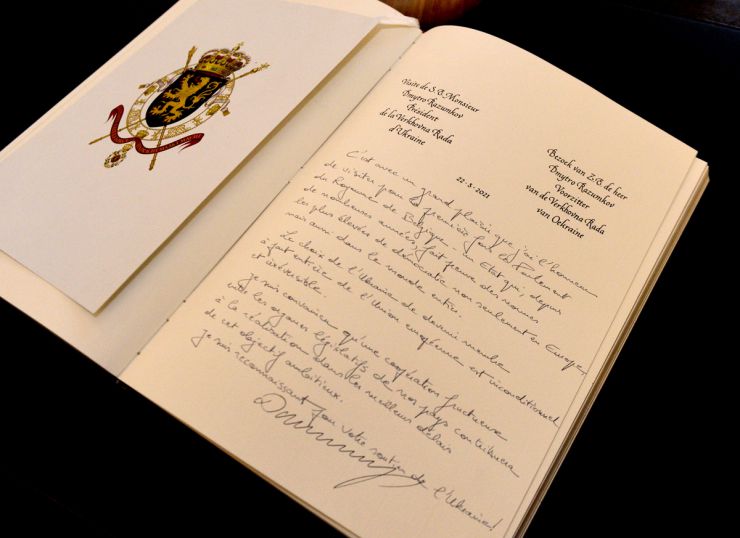 Visite de S.E. Monsieur
Dmytro Razumkov
Président
de la Verkhovna Rada
d'Ukraine
Bezoek van Z.E. de heer
Dmytro Razumkov
Voorzitter
van de Verkhovna Rada
van Oekraine
22-3-2021
C'est avec un grand plaisir que j'ai l'honneur
de visiter pour la première fois le Parlement
du Royaume de Belgique - un Etat qui, depuis
de nombreuses années, fait preuve des normes
les plus élevées de démocratie non seulement en Europe,
mais aussi dans le monde entier.
Le choix de l'Ukraine de devenir membre
à part entière de l'Union européenne est inconditionnel
et irréversible.
Je suis convaincu qu'une coopération fructueuse
entre les organes législatifs de nos pays contribuera
à la réalisation dans les meilleurs délais
de cet objectif ambitieux.
Je suis reconnaissant pour votre soutien de l'Ukraine!